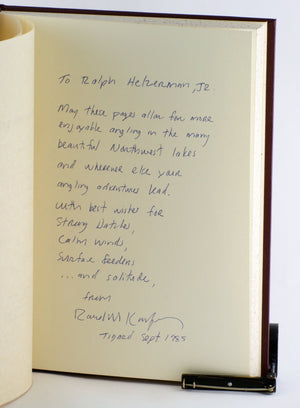 To Ralph Heterman, Jr
May these pages allow for more
enjoyable angling in the many
beautiful Northwest lakes
and wherever else your
angling adventures lead.
With best wishes for
Strong Hatches,
Calm winds,
Surface feeders
...and solitude,
from
Sept 1985